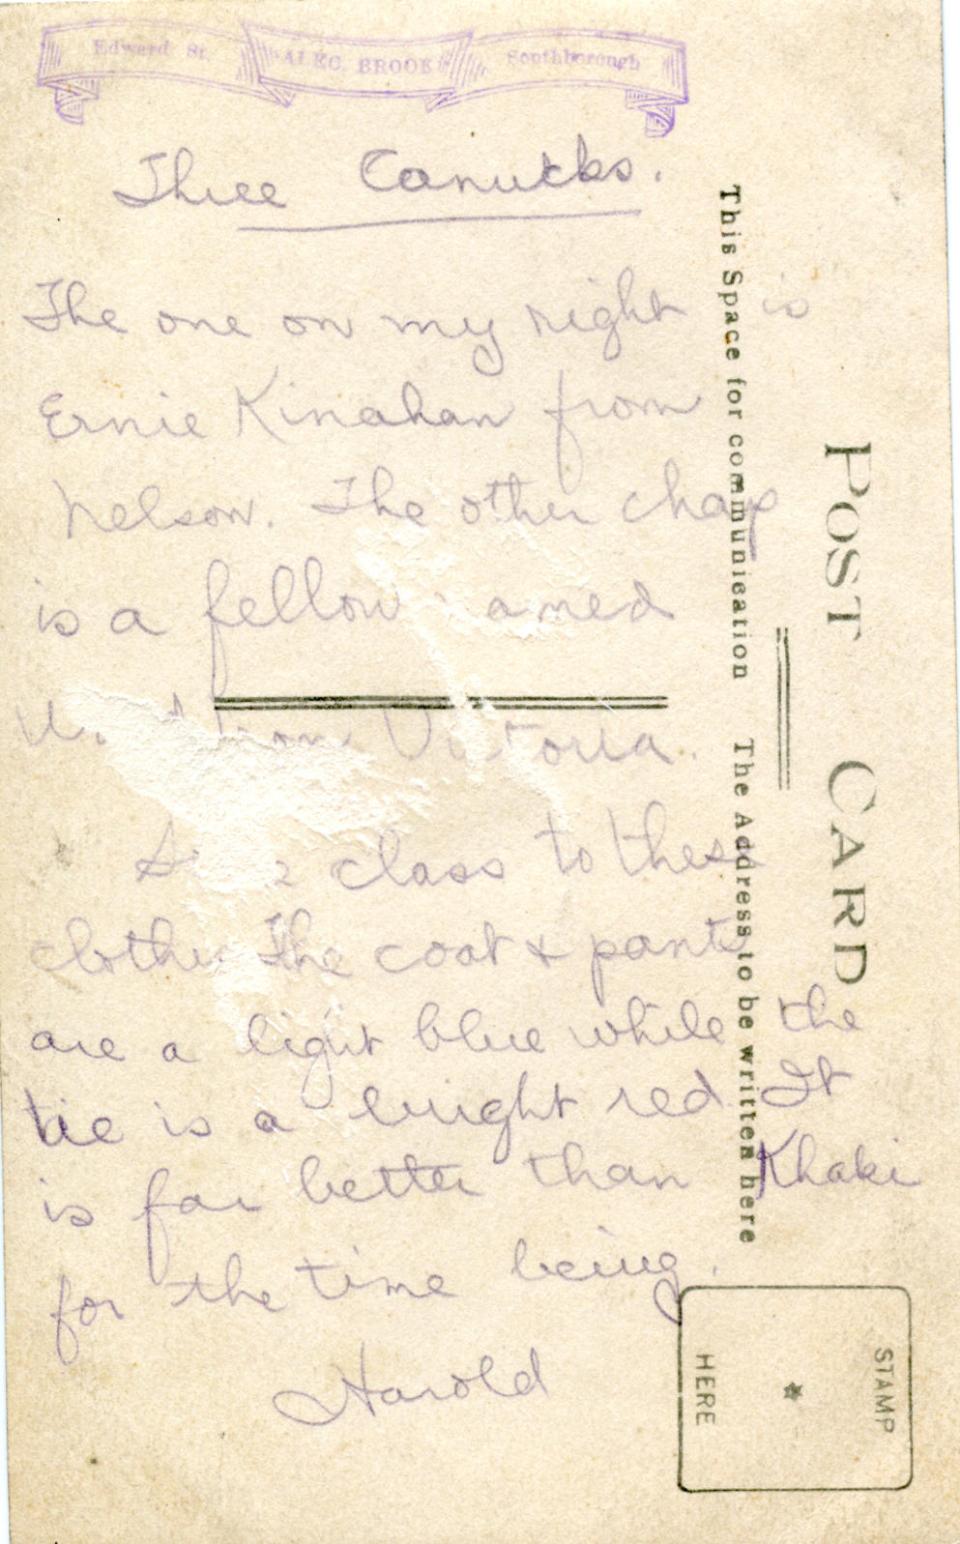 Edward St. ALEC. BROOK Southborough
Three Canucks.
The one on my right is
Ernie Kinahan from
Nelson. The other chap
is a fellow amed
from Victoria.
class to these
The coat & pants
are a light blue while the
tie is a bright red. It
is far better than Khaki
for the time being.
Harold
POST CARD
This Space for communication The Address to be written here
STAMP
HERE